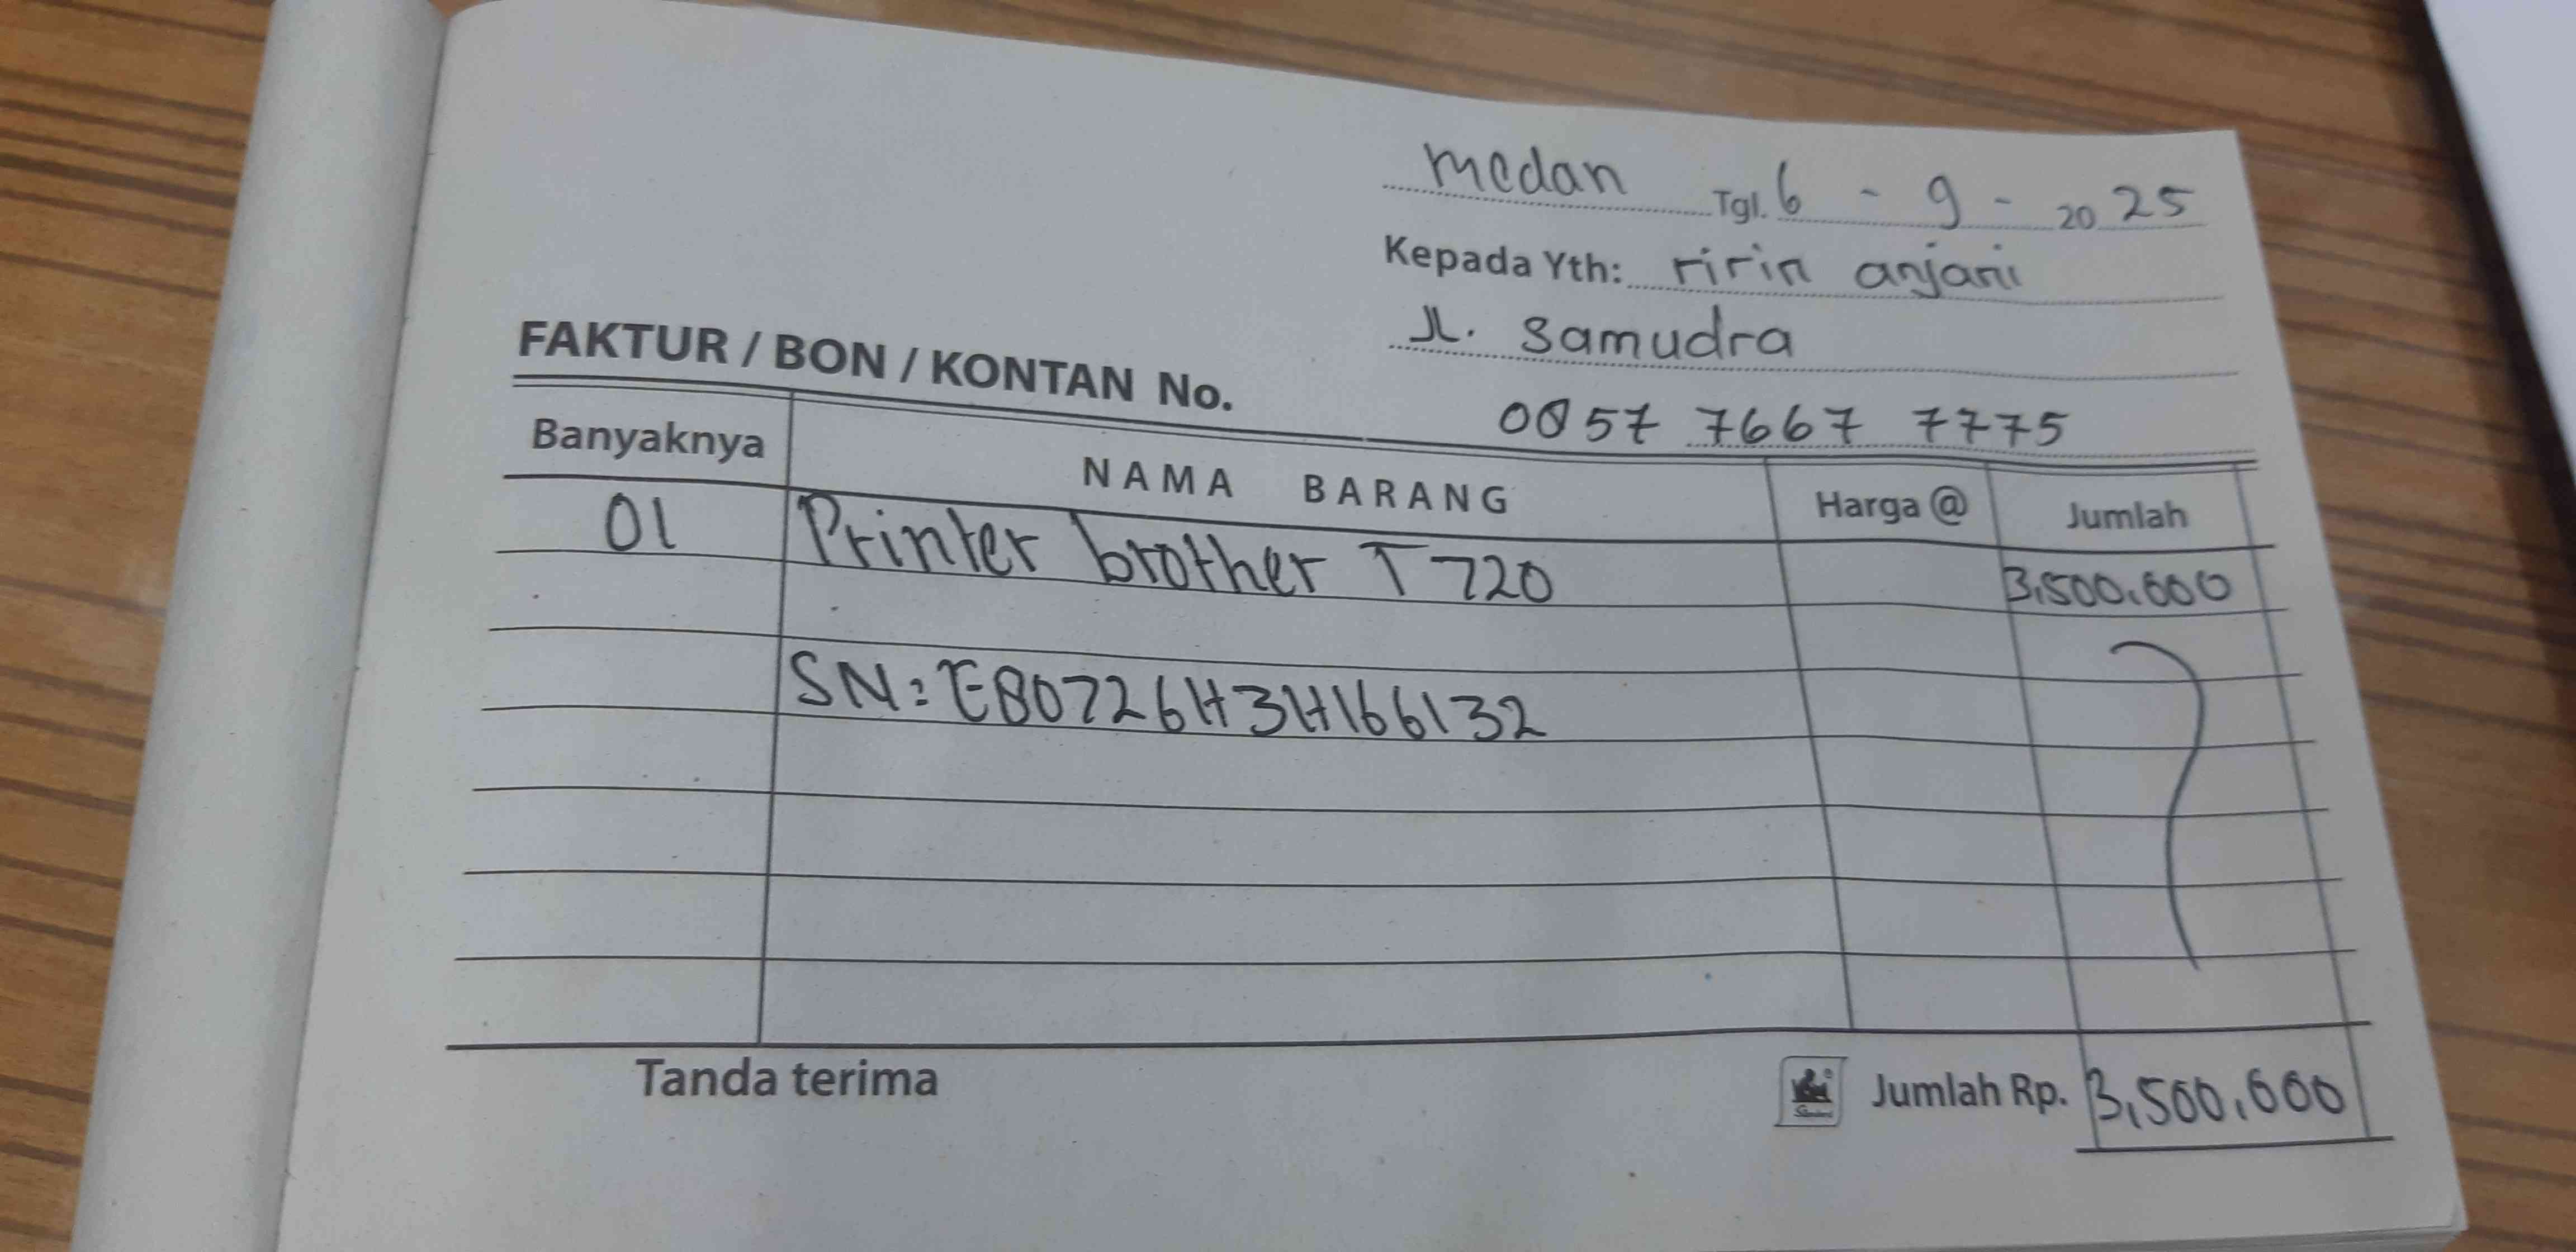 medan Tgl. 6 - 9 - 2025
Kepada Yth: ririn anjani
Jl. Samudra
FAKTUR / BON / KONTAN No.
0857 7667 7775
Banyaknya NAMA BARANG Harga @ Jumlah
01 Printer brother T720 3,500.000
SN: E80726H3H166132
Tanda terima Jumlah Rp. 3,500,000